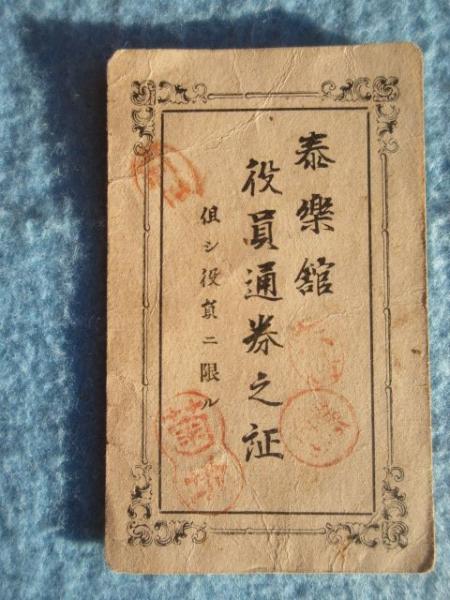 泰樂舘
役員通券之証
但シ役員ニ限ル